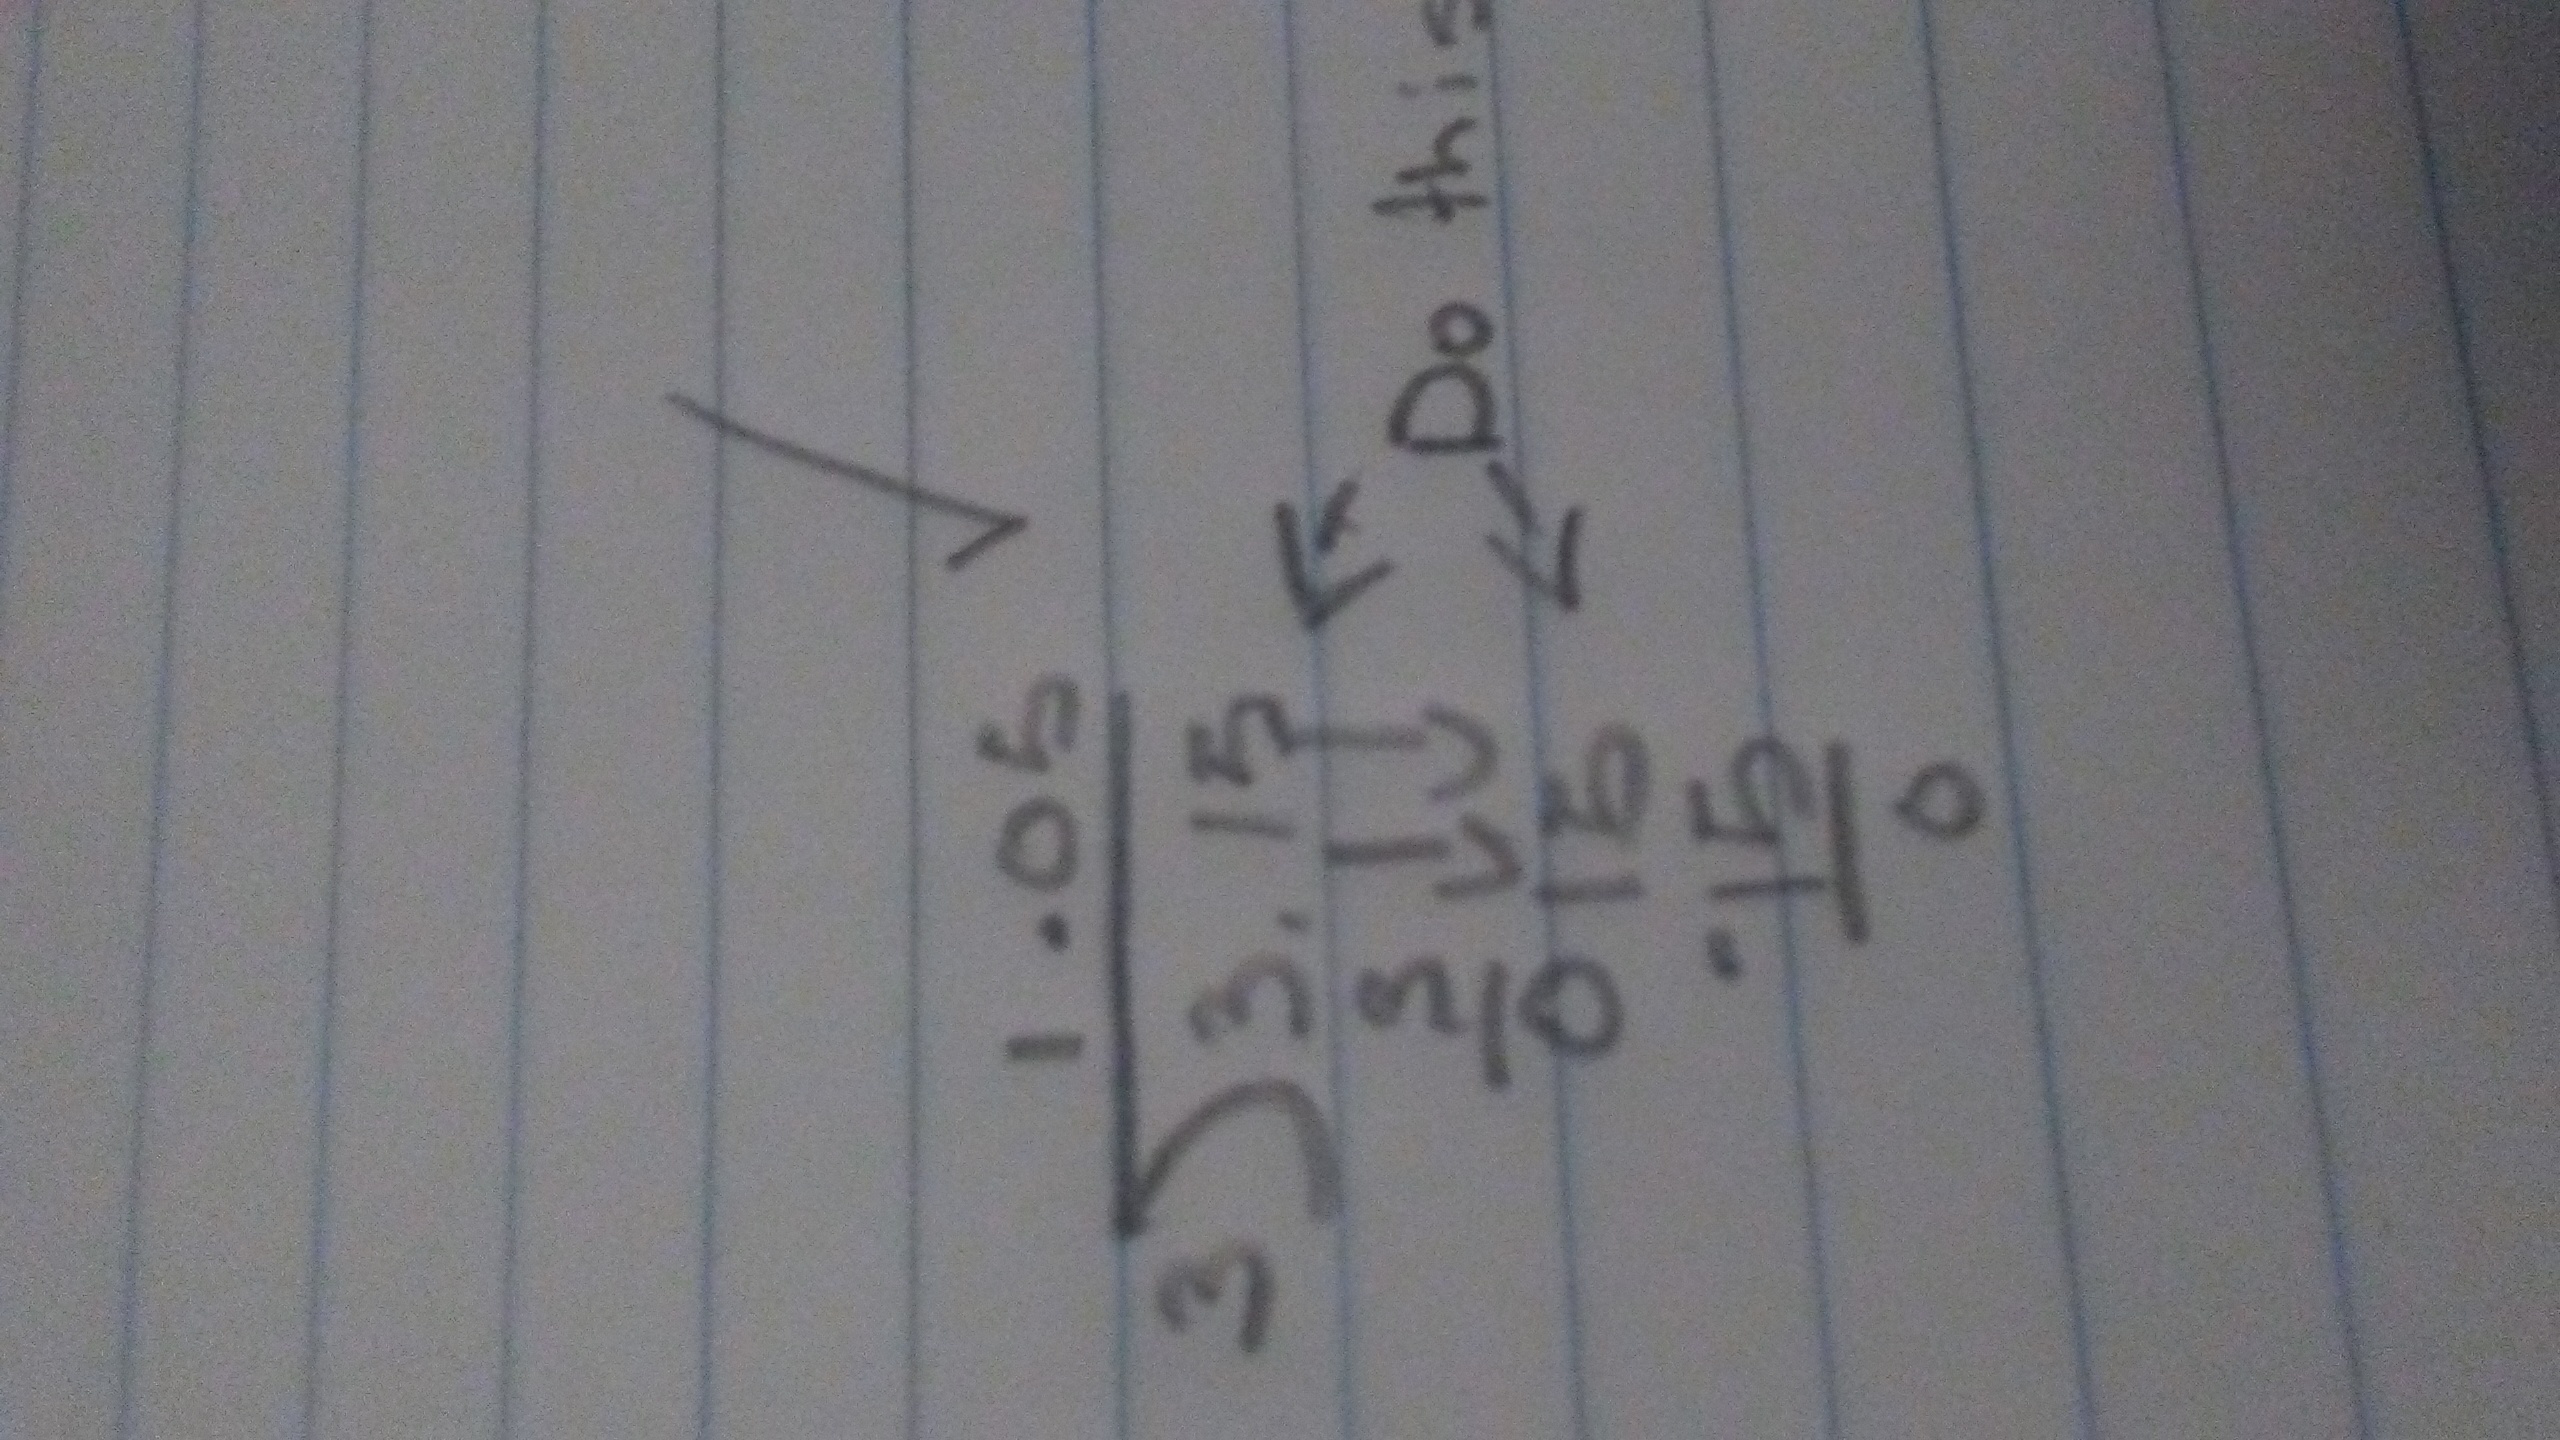 1.05
3 3.15
3
Do this
0 15
.15
0